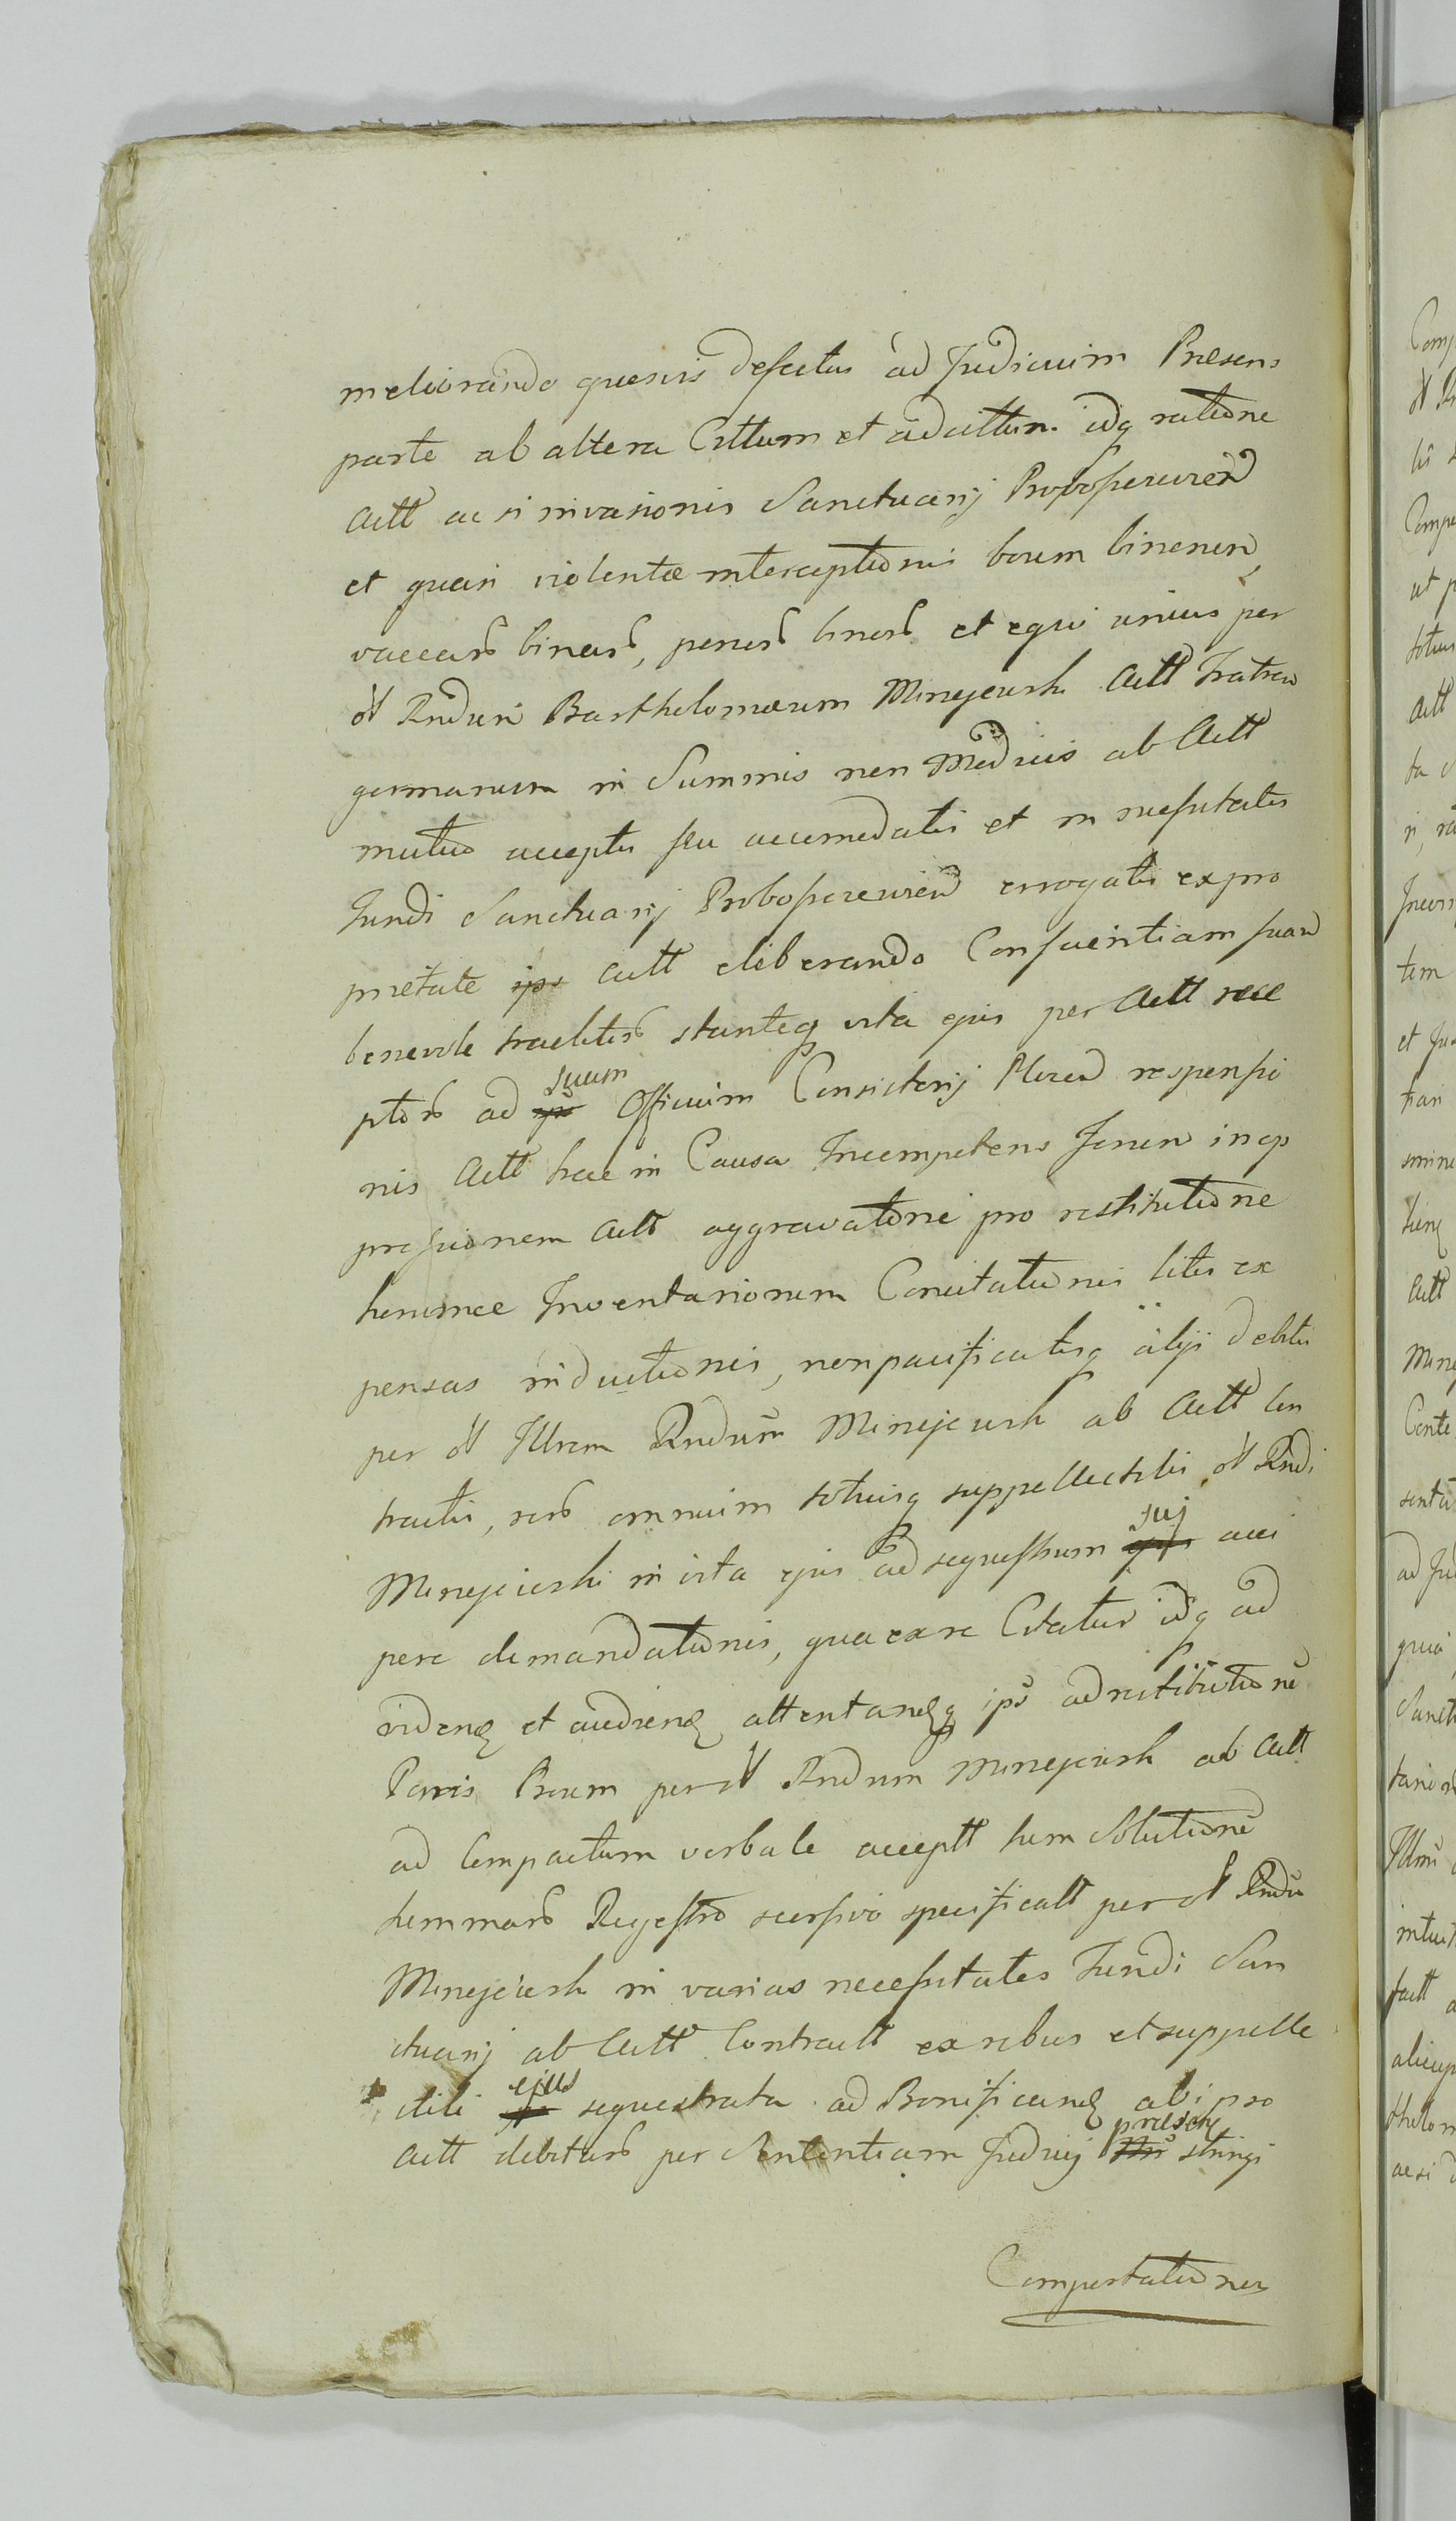 meliorando quesvis defectus ad Judicium Præsens
parte ab altera Citttum et adcittum idq ratione
Actt ac si invasionis Sanctuarij Proboszczeviend
et quasi violentæ interceptionis boum binorum,
vaccarū binarū, porcorū binorū et equi unius per
ol Rndum Bartholomæum Minejewski Actt Fratrem
germanum in Summis non Modicis ab Actt
mutuo acceptis seu accomodatis et in necessitates
Fundi Sanctuarij Proboszczeviend errogatis ex pro
prietate Actt eliberando Conscientiam suam
benevole traditorū stanteq vita ejus per Actt rece
ptorū ad suum Officium Consistorij Plocend responsio
nis Actt hac in Causa Incompetens Forum in op
pressionem Actt aggravationi pro restitutione
horumce Inventariorum Concitationis litis ex
pensas inductionis, non pacificatisq alijs debitis
per ol Illrem Rndum Minejewski ab Actt con
tractis, rerū omnium totiusq suppellectilis ol Rndi
Minejewski in vita ejus ad sequestrum sui acci
pere demandationis, quaexre Citatur idq ad
videnđ et audienđ attentanđq ipū ad restitutionē
Paris Boum per ol Rndum Minejewski ab Actt
ad Compactum verbale acceptt tum Solutionē
Summarū Regestro scorsivo specificatt per ol Rndū
Minejewski in varias necessitates Fundi San
ctuarij ab Actt Contractt ex rebus et suppelle
ctili ejus sequestrata ad Bonificanđ abipso
Actt debitarū per Sententiam Judicij præsen stringi
Comportationes